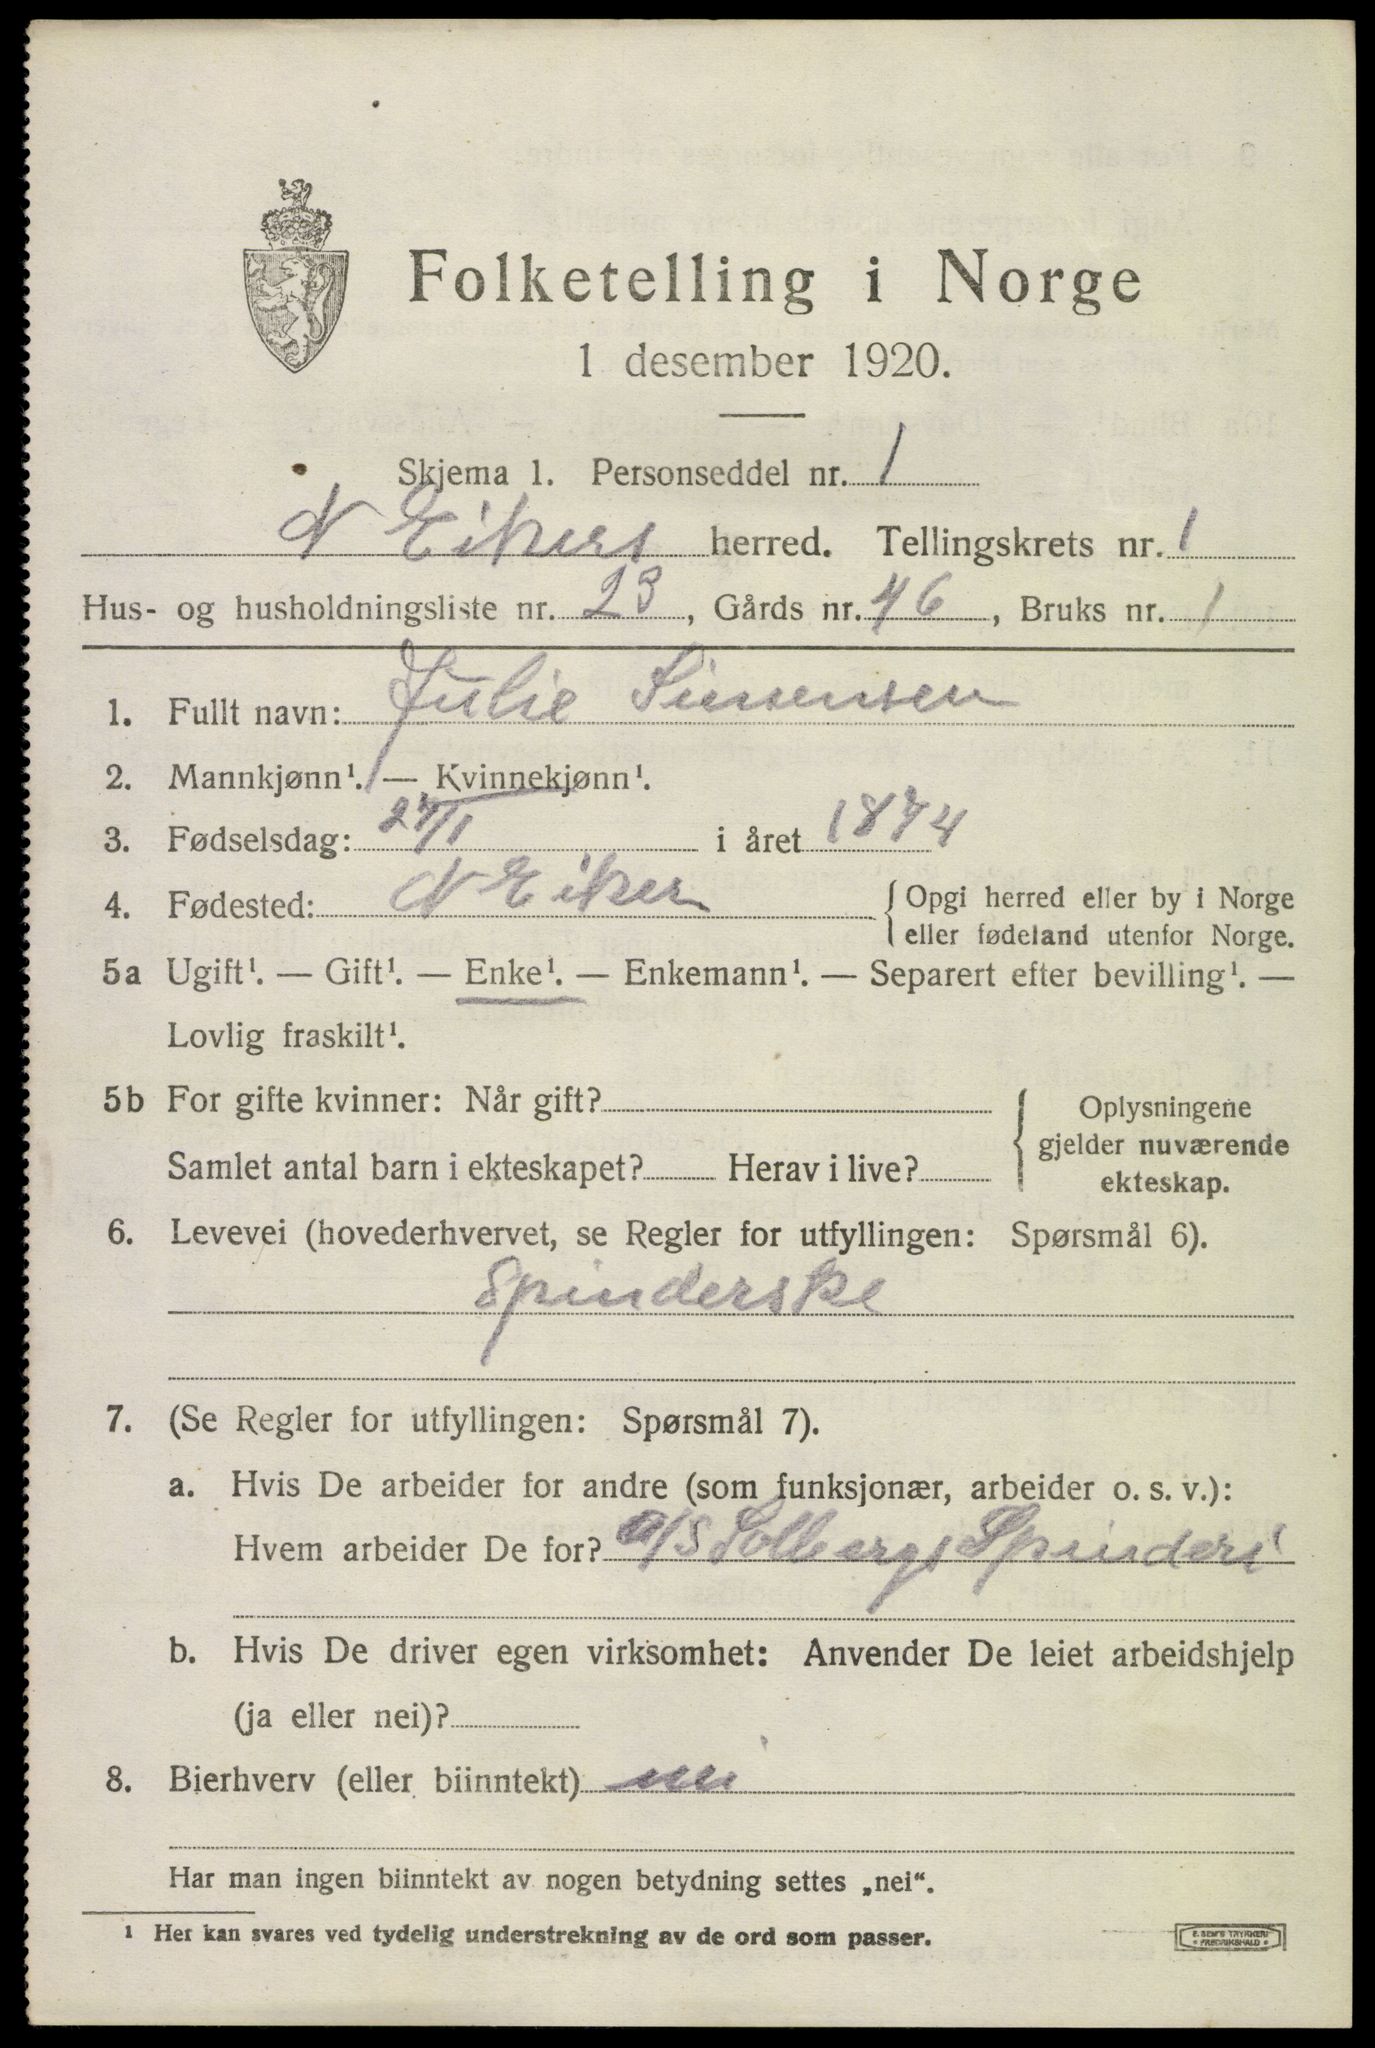 Folketelling i Norge
1 desember 1920.
Skjema 1. Personseddel nr. 1
N Eikers herred. Tellingskrets nr. 1
Hus- og husholdningsliste nr. 23, Gårds nr. 46, Bruks nr. 1
1. Fullt navn: Julie
2. Mannkjønn¹. — Kvinnekjønn¹.
3. Fødselsdag: 27/1 i året 1874
4. Fødested: N Eiker { Opgi herred eller by i Norge
eller fødeland utenfor Norge.
5a Ugift¹. — Gift¹. — Enke¹. — Enkemann¹. — Separert efter bevilling¹. —
Lovlig fraskilt¹.
5b For gifte kvinner: Når gift? { Oplysningene
gjelder nuværende
Samlet antal barn i ekteskapet? Herav i live?
ekteskap.
6. Levevei (hovederhvervet, se Regler for utfyllingen: Spørsmål 6).
Spinderske
7. (Se Regler for utfyllingen: Spørsmål 7).
a. Hvis De arbeider for andre (som funksjonær, arbeider o. s. v.):
Hvem arbeider De for? A/S Solbergs Spinderi
b. Hvis De driver egen virksomhet: Anvender De leiet arbeidshjelp
(ja eller nei)?
8. Bierhverv (eller biinntekt) nei
Har man ingen biinntekt av nogen betydning settes „nei“.
¹ Her kan svares ved tydelig understrekning av de ord som passer.
E. SEM'S TRYKKERI
FREDRIKSHALD